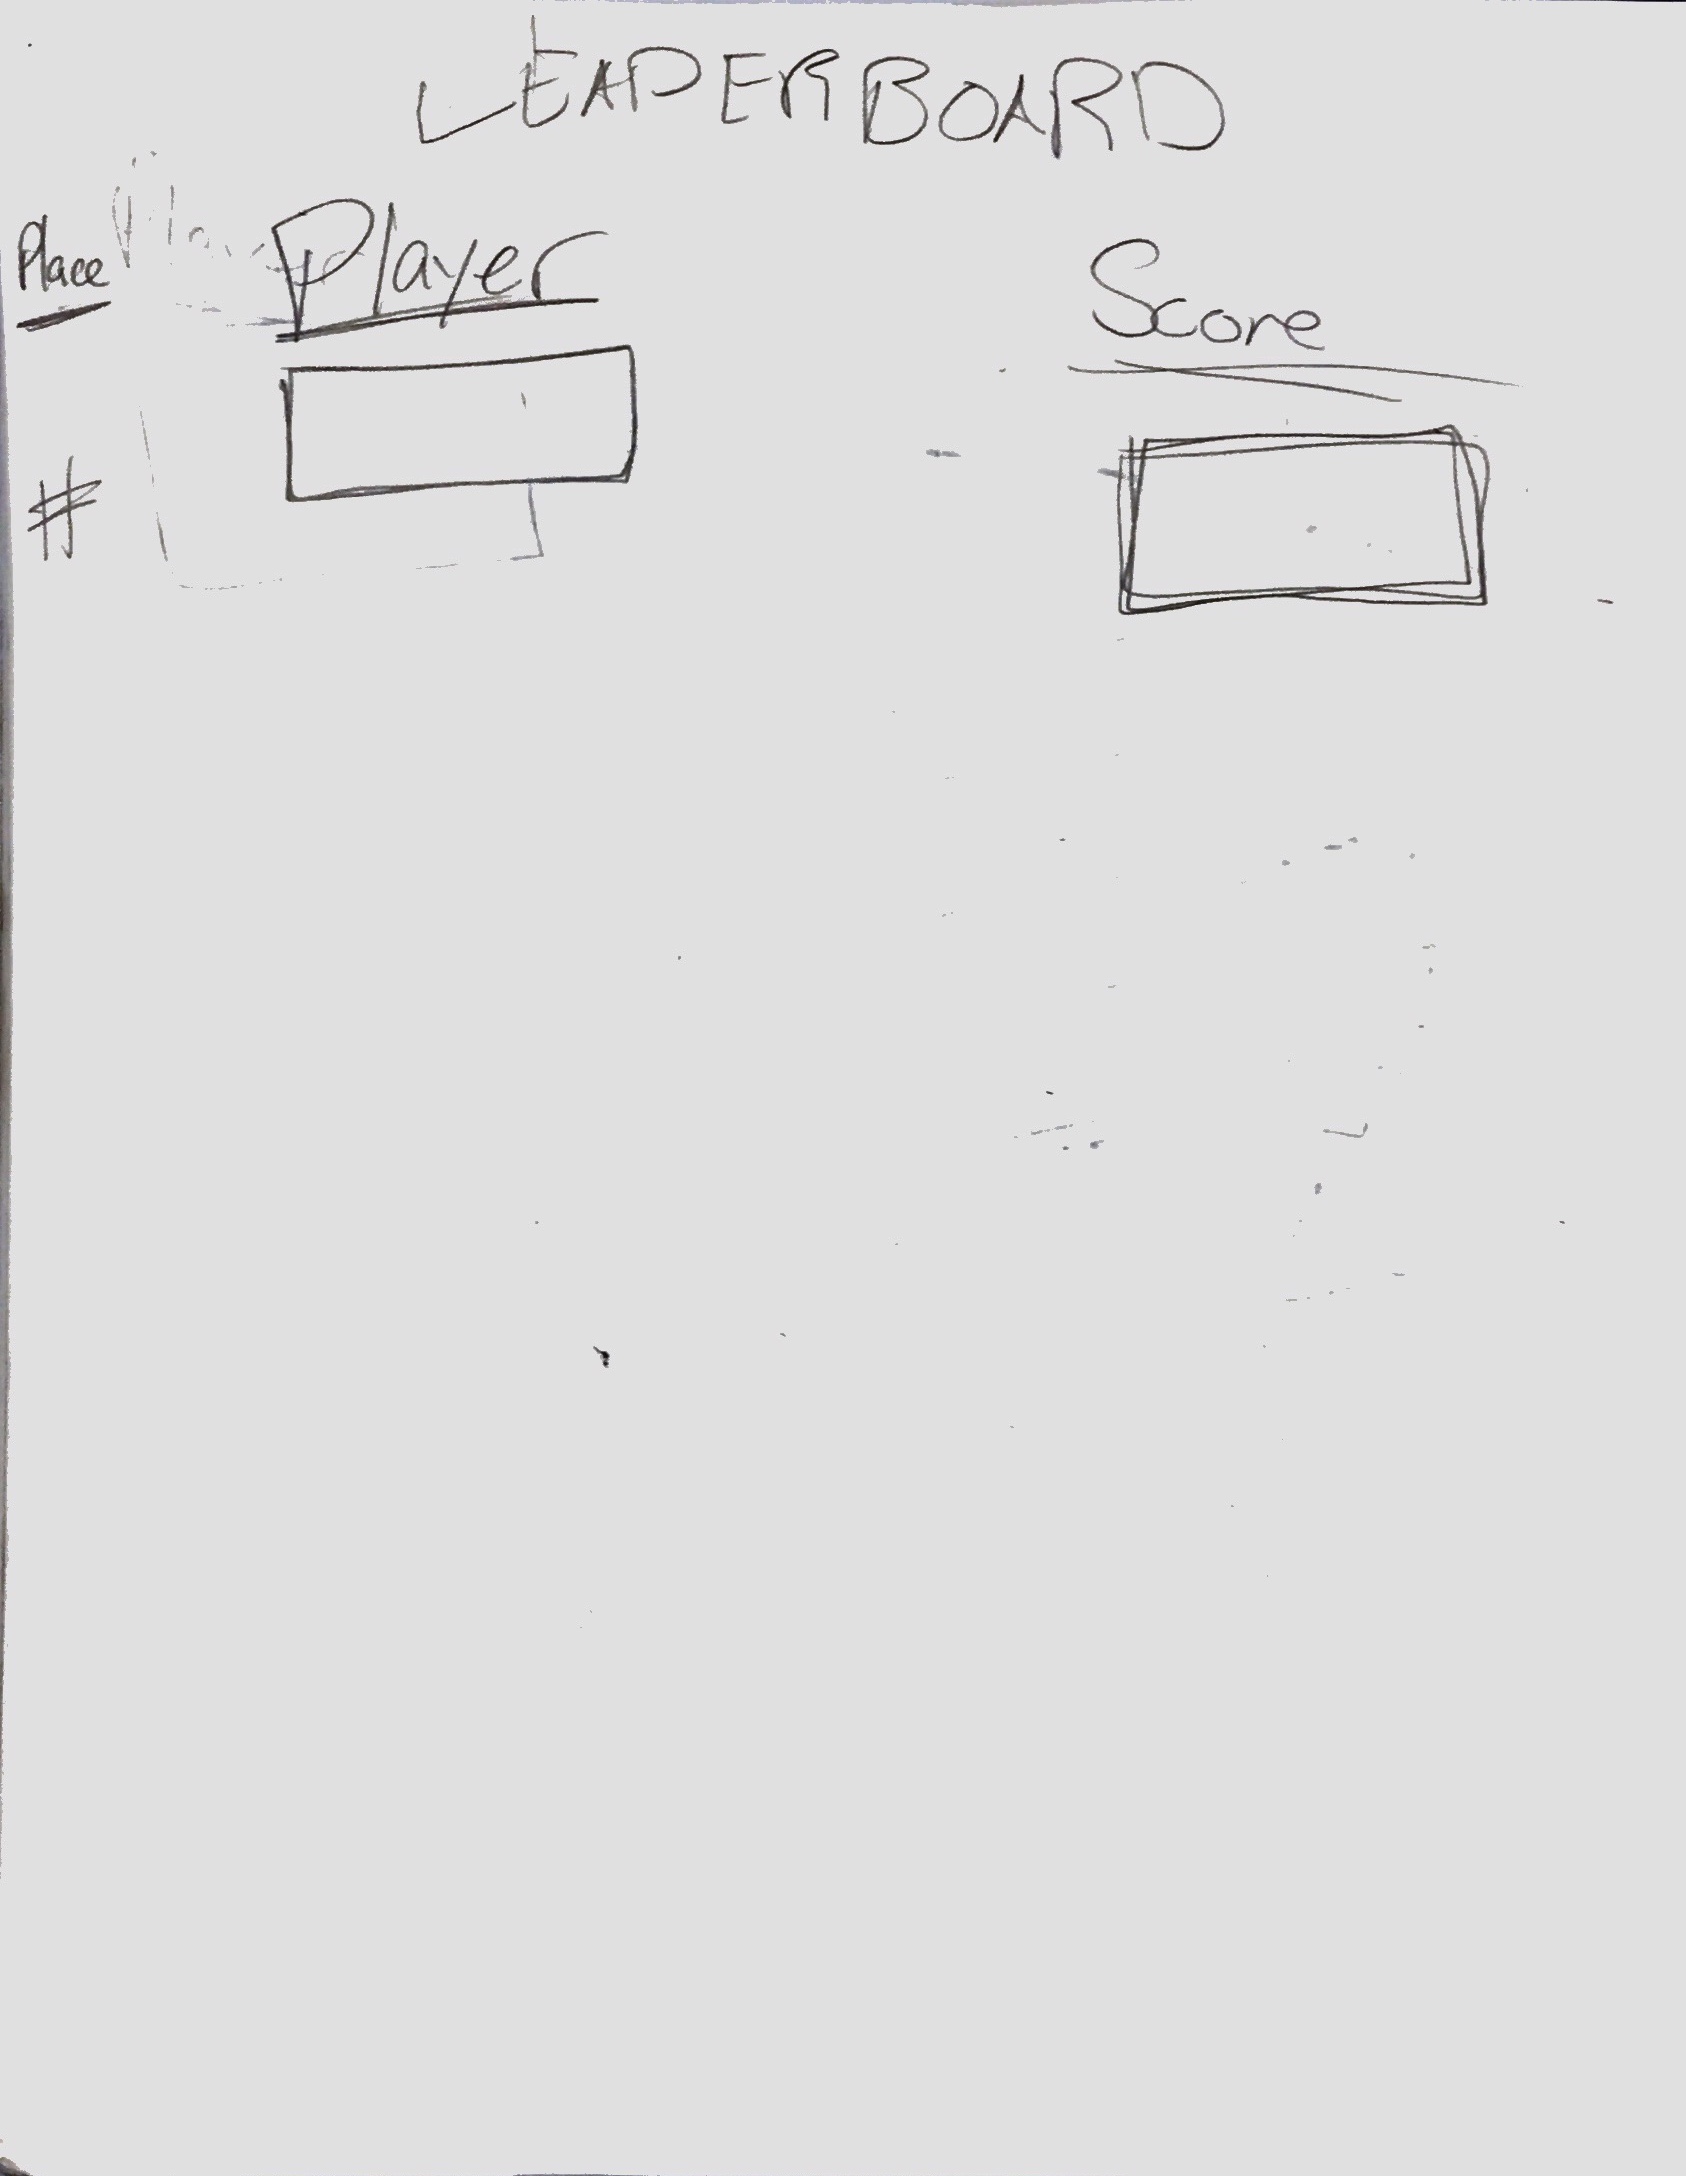 LEADERBOARD
Place Player Score
#